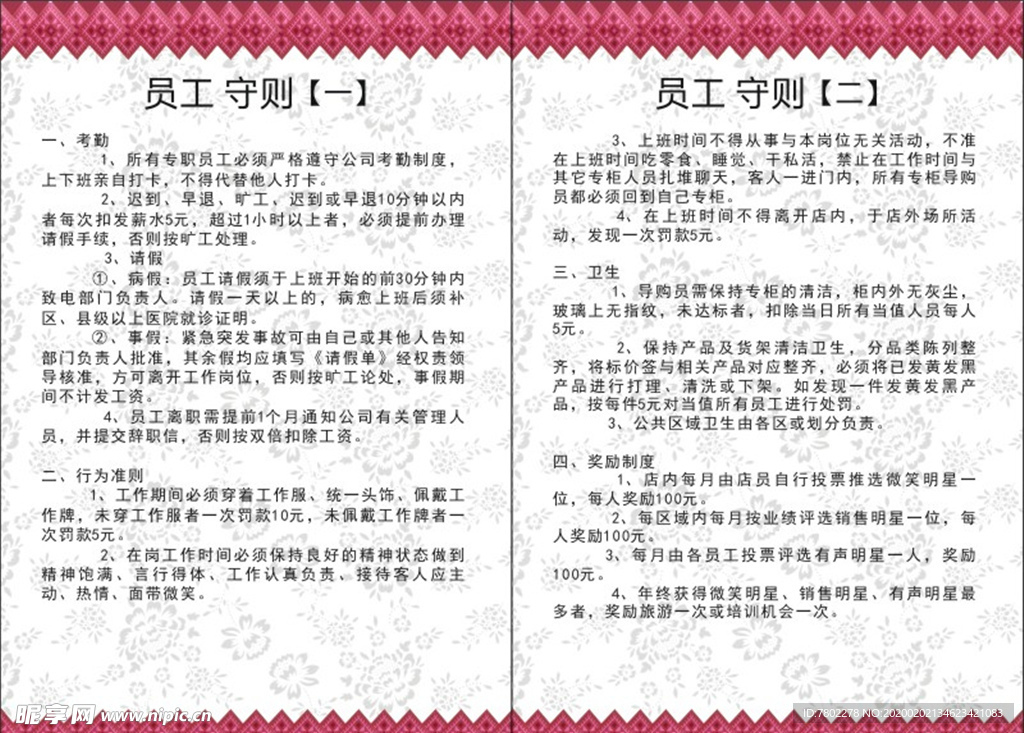 员工 守则【一】
一、考勤
1、所有专职员工必须严格遵守公司考勤制度，
上下班亲自打卡，不得代替他人打卡。
2、迟到、早退、旷工、迟到或早退10分钟以内
者每次扣发薪水5元，超过1小时以上者，必须提前办理
请假手续，否则按旷工处理。
3、请假
①、病假：员工请假须于上班开始的前30分钟内
致电部门负责人。请假一天以上的，病愈上班后须补
区、县级以上医院就诊证明。
②、事假：紧急突发事故可由自己或其他人告知
部门负责人批准，其余假均应填写《请假单》经权责领
导核准，方可离开工作岗位，否则按旷工论处，事假期
间不计发工资。
4、员工离职需提前1个月通知公司有关管理人
员，并提交辞职信，否则按双倍扣除工资。
二、行为准则
1、工作期间必须穿着工作服、统一头饰、佩戴工
作牌，未穿工作服者一次罚款10元，未佩戴工作牌者一
次罚款5元。
2、在岗工作时间必须保持良好的精神状态做到
精神饱满、言行得体、工作认真负责、接待客人应主
动、热情、面带微笑。
员工 守则【二】
3、上班时间不得从事与本岗位无关活动，不准
在上班时间吃零食、睡觉、干私活，禁止在工作时间与
其它专柜人员扎堆聊天，客人一进门内，所有专柜导购
员都必须回到自己专柜。
4、在上班时间不得离开店内，于店外场所活
动，发现一次罚款5元。
三、卫生
1、导购员需保持专柜的清洁，柜内外无灰尘，
玻璃上无指纹，未达标者，扣除当日所有当值人员每人
5元。
2、保持产品及货架清洁卫生，分品类陈列整
齐，将标价签与相关产品对应整齐，必须将已发黄发黑
产品进行打理、清洗或下架。如发现一件发黄发黑产
品，按每件5元对当值所有员工进行处罚。
3、公共区域卫生由各区或划分负责。
四、奖励制度
1、店内每月由店员自行投票推选微笑明星一
位，每人奖励100元。
2、每区域内每月按业绩评选销售明星一位，每
人奖励100元。
3、每月由各员工投票评选有声明星一人，奖励
100元。
4、年终获得微笑明星、销售明星、有声明星最
多者，奖励旅游一次或培训机会一次。
昵享网 www.nipic.cn
ID:7802278 NO:20200202134623421083